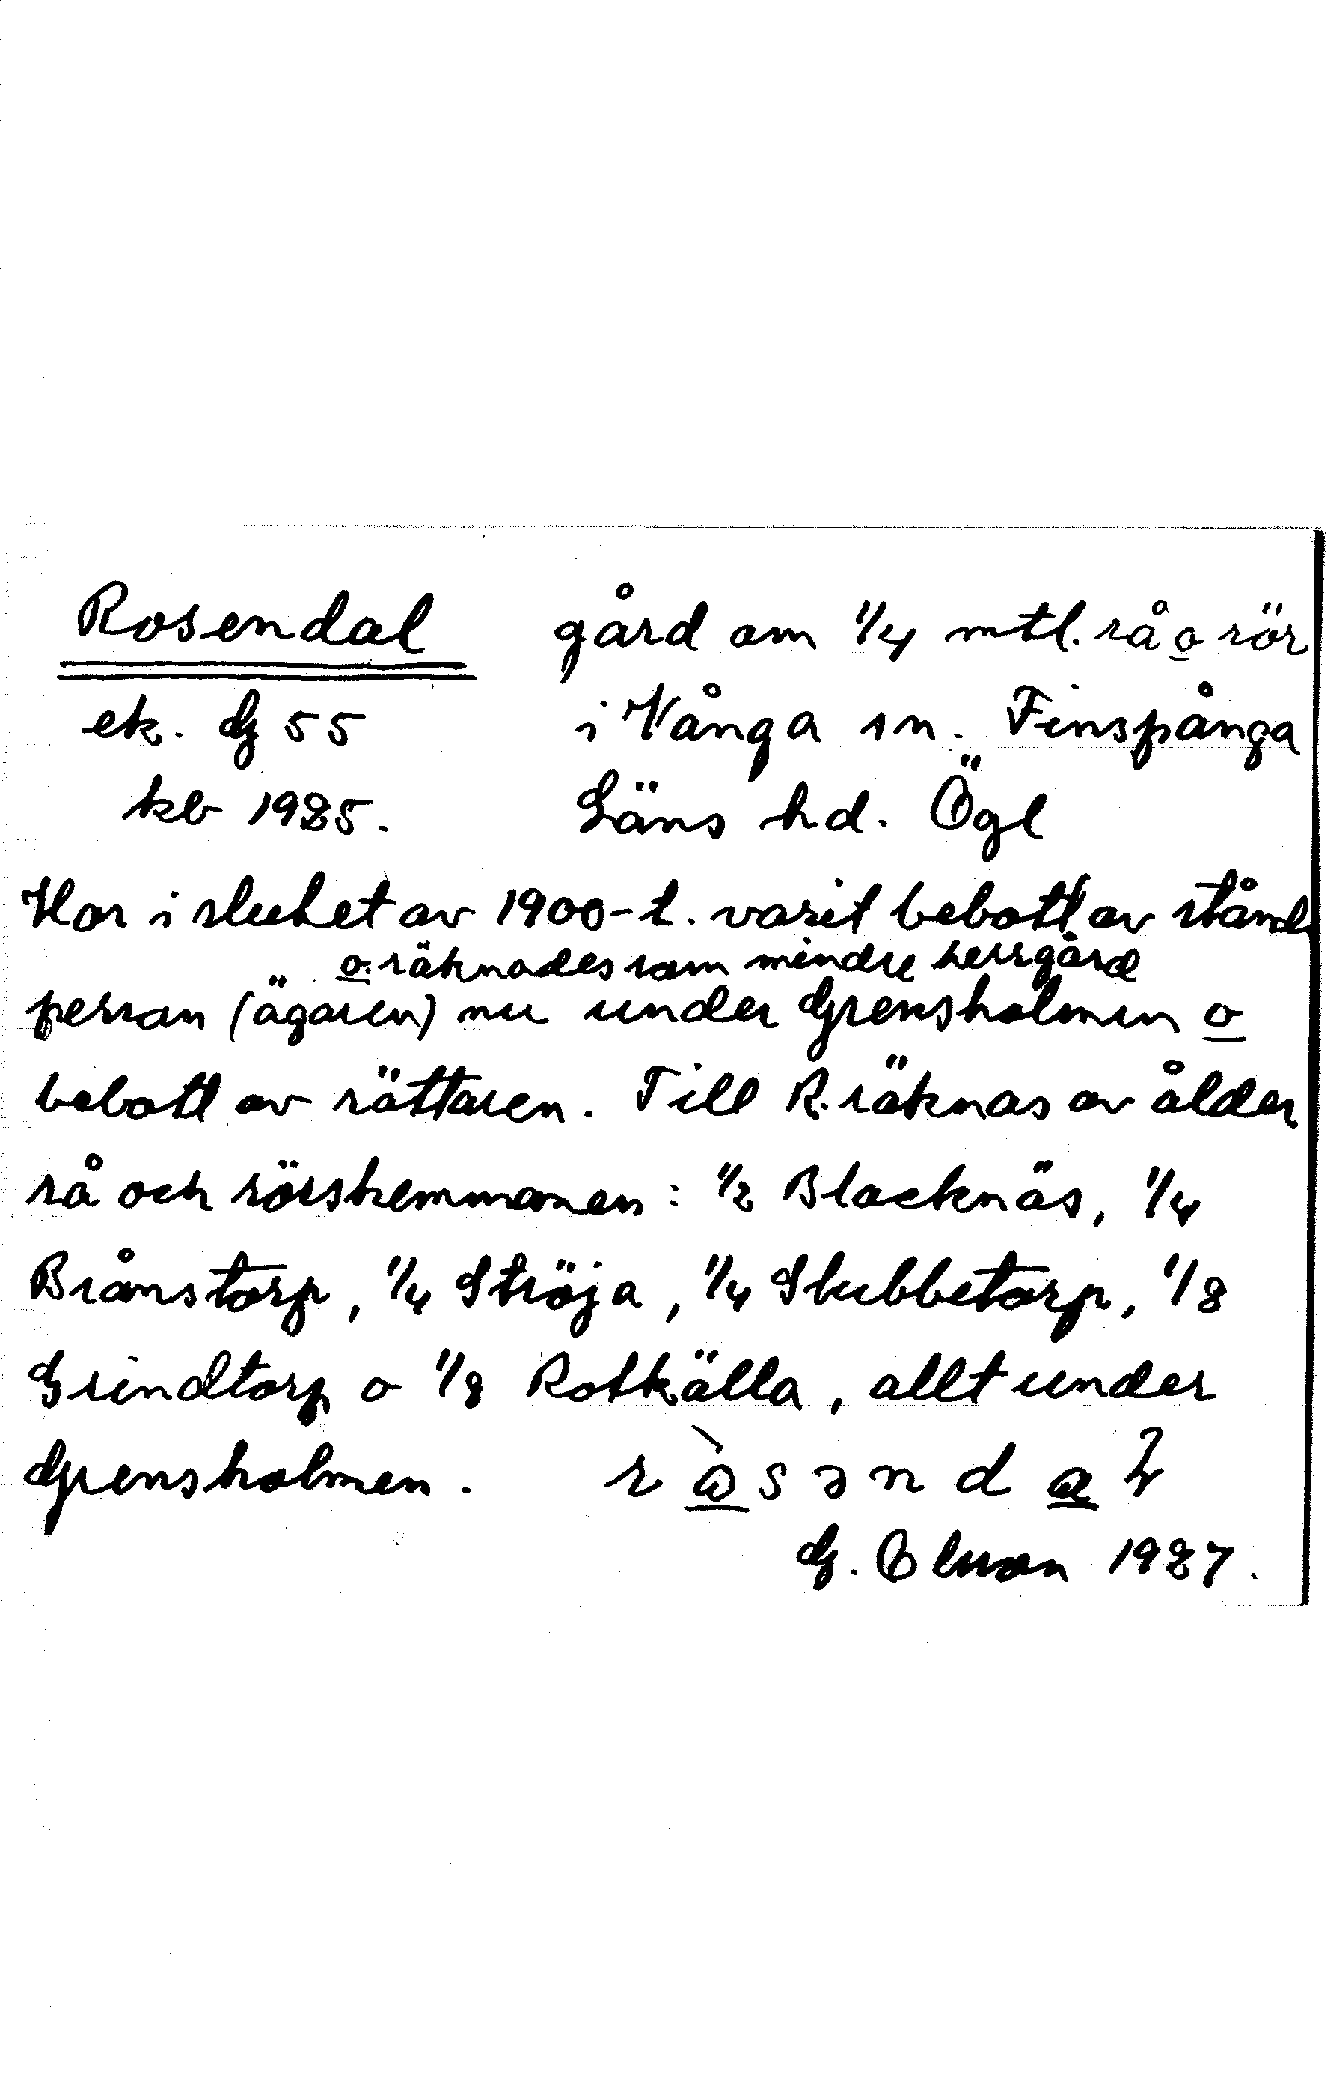 Rosendal gård om 1/4 mtl. rå o rör
ek. G 55 i Vånga sn. Finspånga
kb 1985. Läns hd. Ögl
Har i slutet av 1900-t. varit bebott av stånds
o. räknades som mindre herrgård
person (ägaren) nu under Grensholmen o
bebott av rättaren. Till R. räknas av ålder
rå och rörshemmanen: 1/2 Blacknäs, 1/4
Brånstorp, 1/4 Ströja, 1/4 Stubbetorp, 1/8
Grindtorp o 1/8 Rotkälla, allt under
Grensholmen.
G. Olsson 1987.